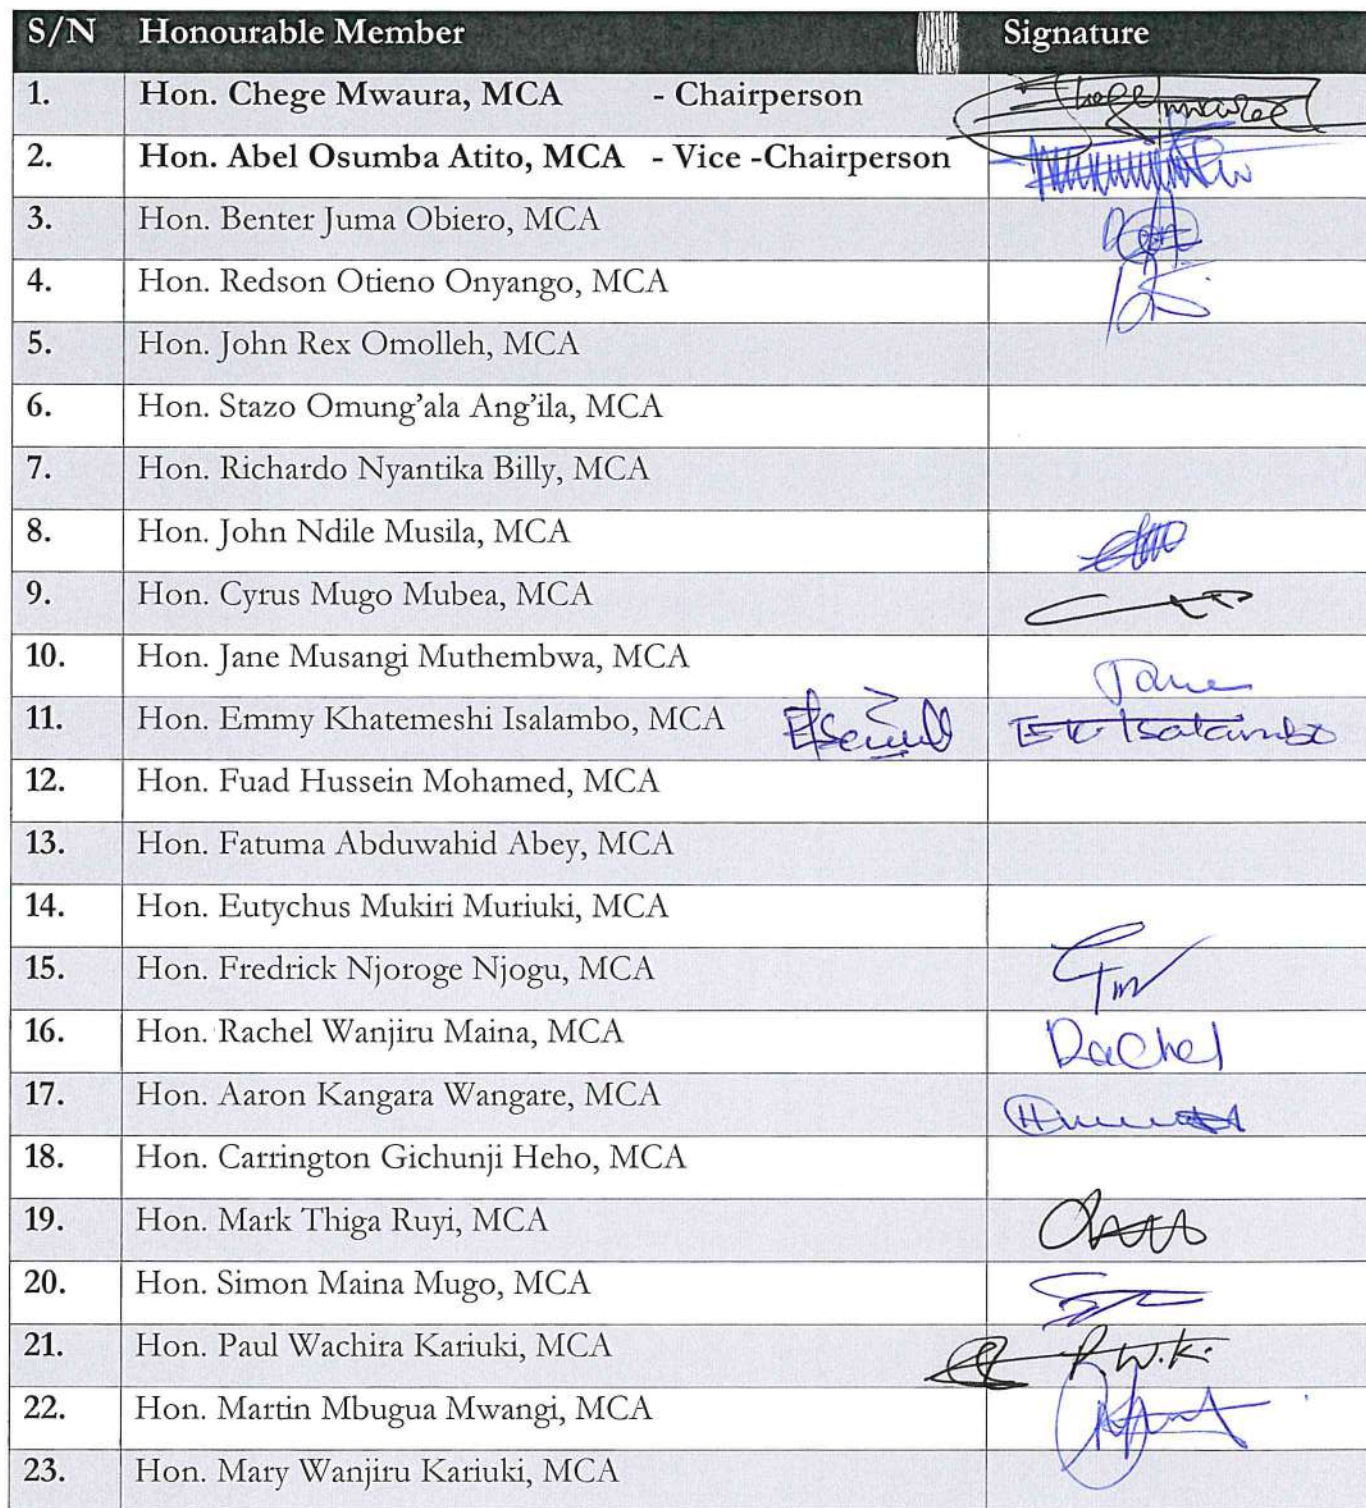 S/N Honourable Member Signature
1. Hon. Chege Mwaura, MCA - Chairperson
2. Hon. Abel Osumba Atito, MCA - Vice -Chairperson
3. Hon. Benter Juma Obiero, MCA
4. Hon. Redson Otieno Onyango, MCA
5. Hon. John Rex Omolleh, MCA
6. Hon. Stazo Omung’ala Ang’ila, MCA
7. Hon. Richardo Nyantika Billy, MCA
8. Hon. John Ndile Musila, MCA
9. Hon. Cyrus Mugo Mubea, MCA
10. Hon. Jane Musangi Muthembwa, MCA Jane
11. Hon. Emmy Khatemeshi Isalambo, MCA E.K. Isalambo
12. Hon. Fuad Hussein Mohamed, MCA
13. Hon. Fatuma Abduwahid Abey, MCA
14. Hon. Eutychus Mukiri Muriuki, MCA
15. Hon. Fredrick Njoroge Njogu, MCA
16. Hon. Rachel Wanjiru Maina, MCA Rachel
17. Hon. Aaron Kangara Wangare, MCA
18. Hon. Carrington Gichunji Heho, MCA
19. Hon. Mark Thiga Ruyi, MCA
20. Hon. Simon Maina Mugo, MCA
21. Hon. Paul Wachira Kariuki, MCA P.W.K.
22. Hon. Martin Mbugua Mwangi, MCA
23. Hon. Mary Wanjiru Kariuki, MCA